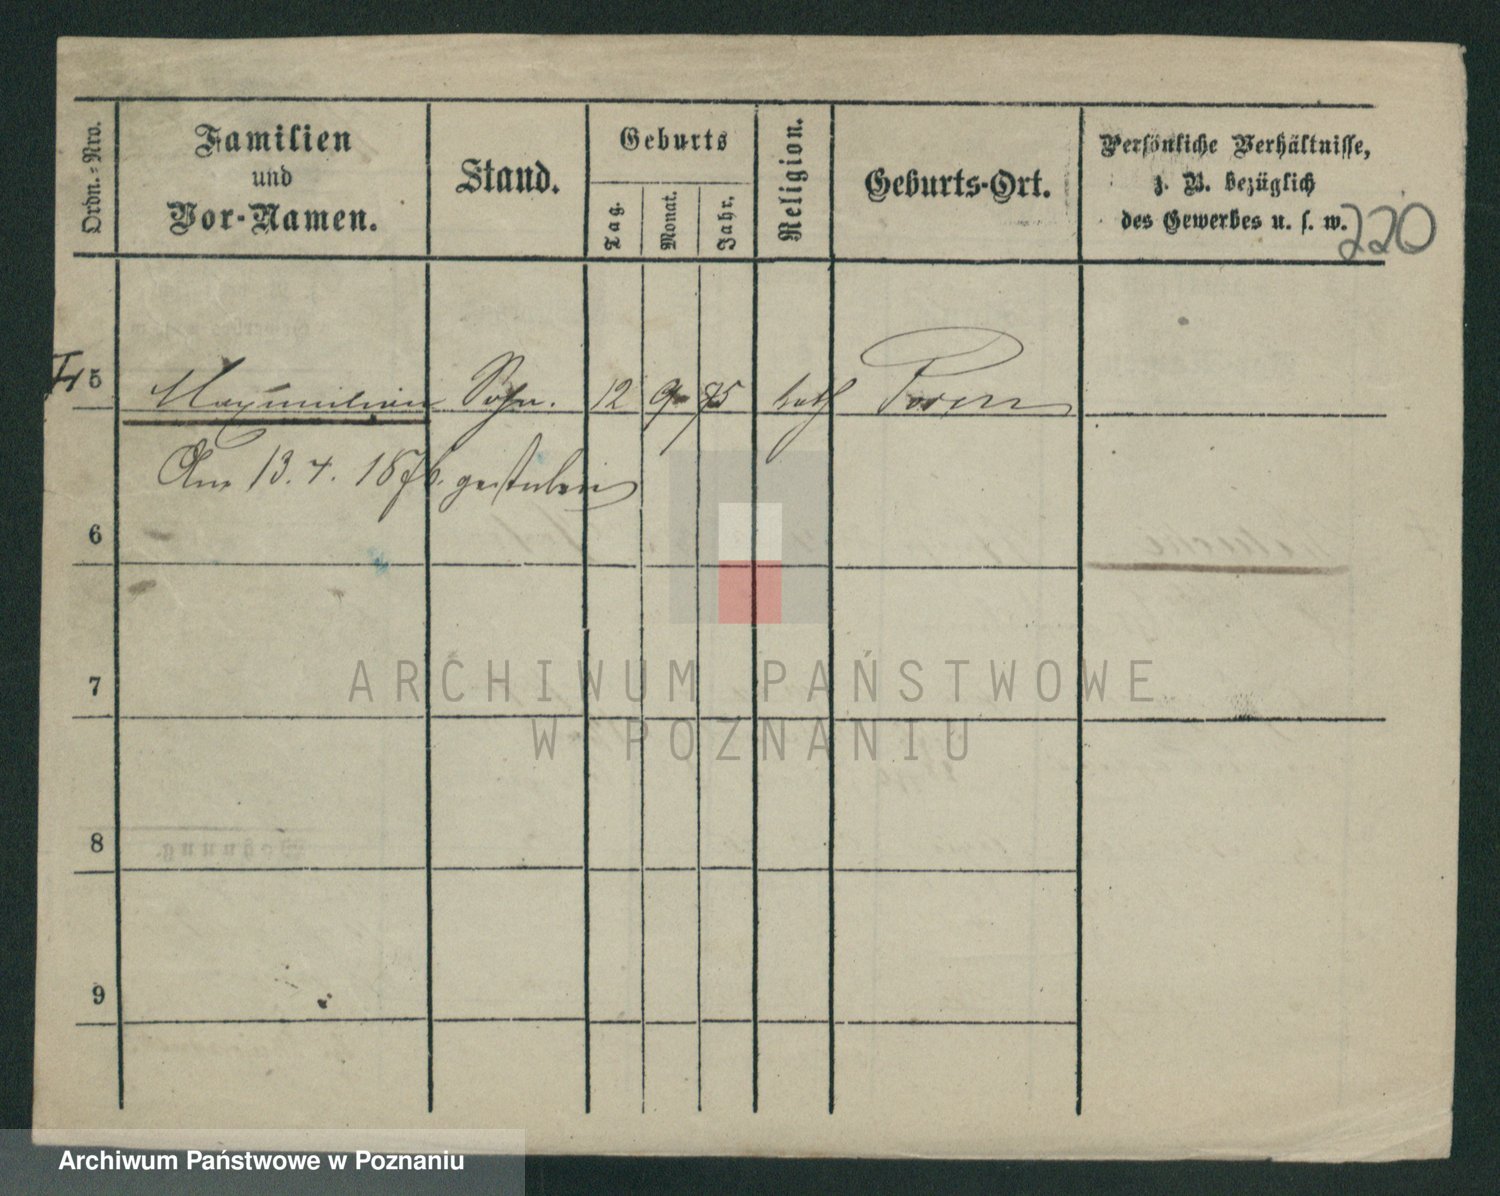 Ordn.-Nro.
Familien
und
Vor-Namen.
Stand.
Geburts
Tag.
Monat.
Jahr.
Religion.
Geburts-Ort.
Persönliche Verhältnisse,
z. B. bezüglich
des Gewerbes u. s. w.
220
5 Maxymilian Sohn. 12 9 75 kath Posen
Am 13. 4. 1876. gestorben
6
7
8
9
ARCHIWUM PAŃSTWOWE
W POZNANIU
Archiwum Państwowe w Poznaniu